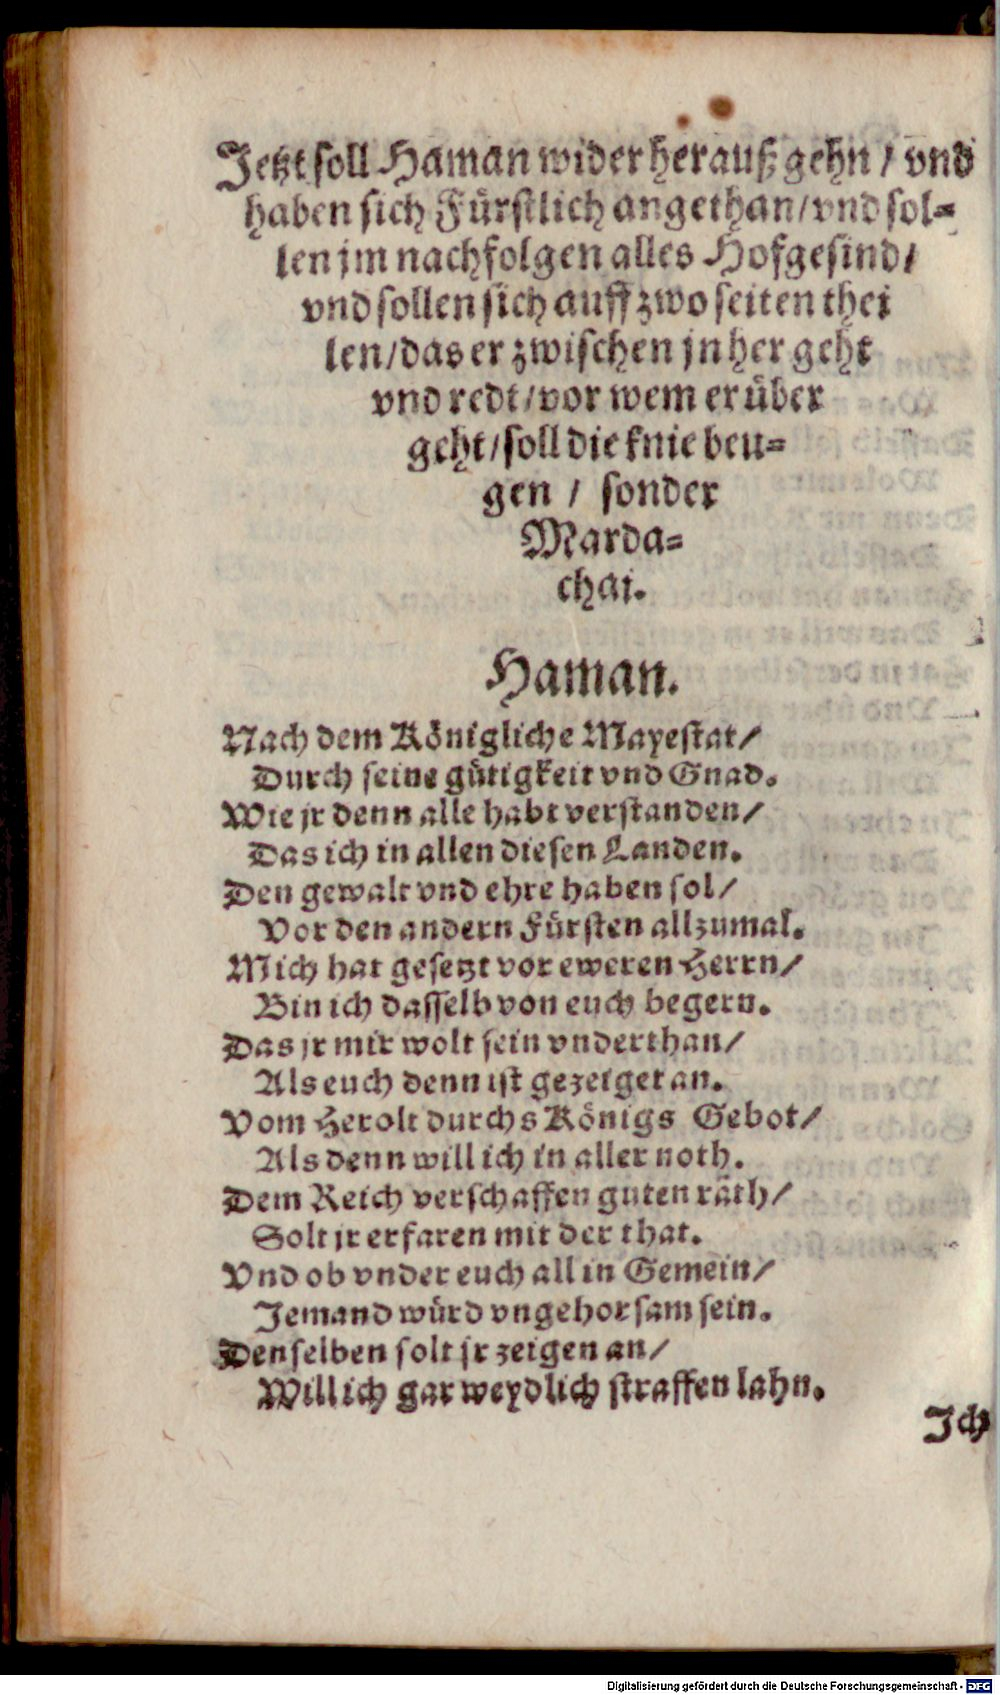 Jetzt soll Haman wider herauß gehn / vnd
haben sich Fürstlich angethan / vnd sol=
len jm nachfolgen alles Hofgesind /
vnd sollen sich auff zwo seiten thei
len / das er zwischen jn her geht
vnd redt / vor wem er über
geht / soll die knie beu=
gen / sonder
Marda=
chai.
Haman.
Nach dem Königliche Mayestat /
Durch seine gütigkeit vnd Gnad.
Wie jr denn alle habt verstanden /
Das ich in allen diesen Landen.
Den gewalt vnd ehre haben sol /
Vor den andern Fürsten allzumal.
Mich hat gesetzt vor eweren Herrn /
Bin ich dasselb von euch begern.
Das jr mir wolt sein vnderthan /
Als euch denn ist gezeiget an.
Vom Herolt durchs Königs Gebot /
Als denn will ich in aller noth.
Dem Reich verschaffen guten räth /
Solt jr erfaren mit der that.
Vnd ob vnder euch all in Gemein /
Jemand würd vngehorsam sein.
Denselben solt jr zeigen an /
Will ich gar weydlich straffen lahn.
Ich
Digitalisierung gefördert durch die Deutsche Forschungsgemeinschaft - DFG